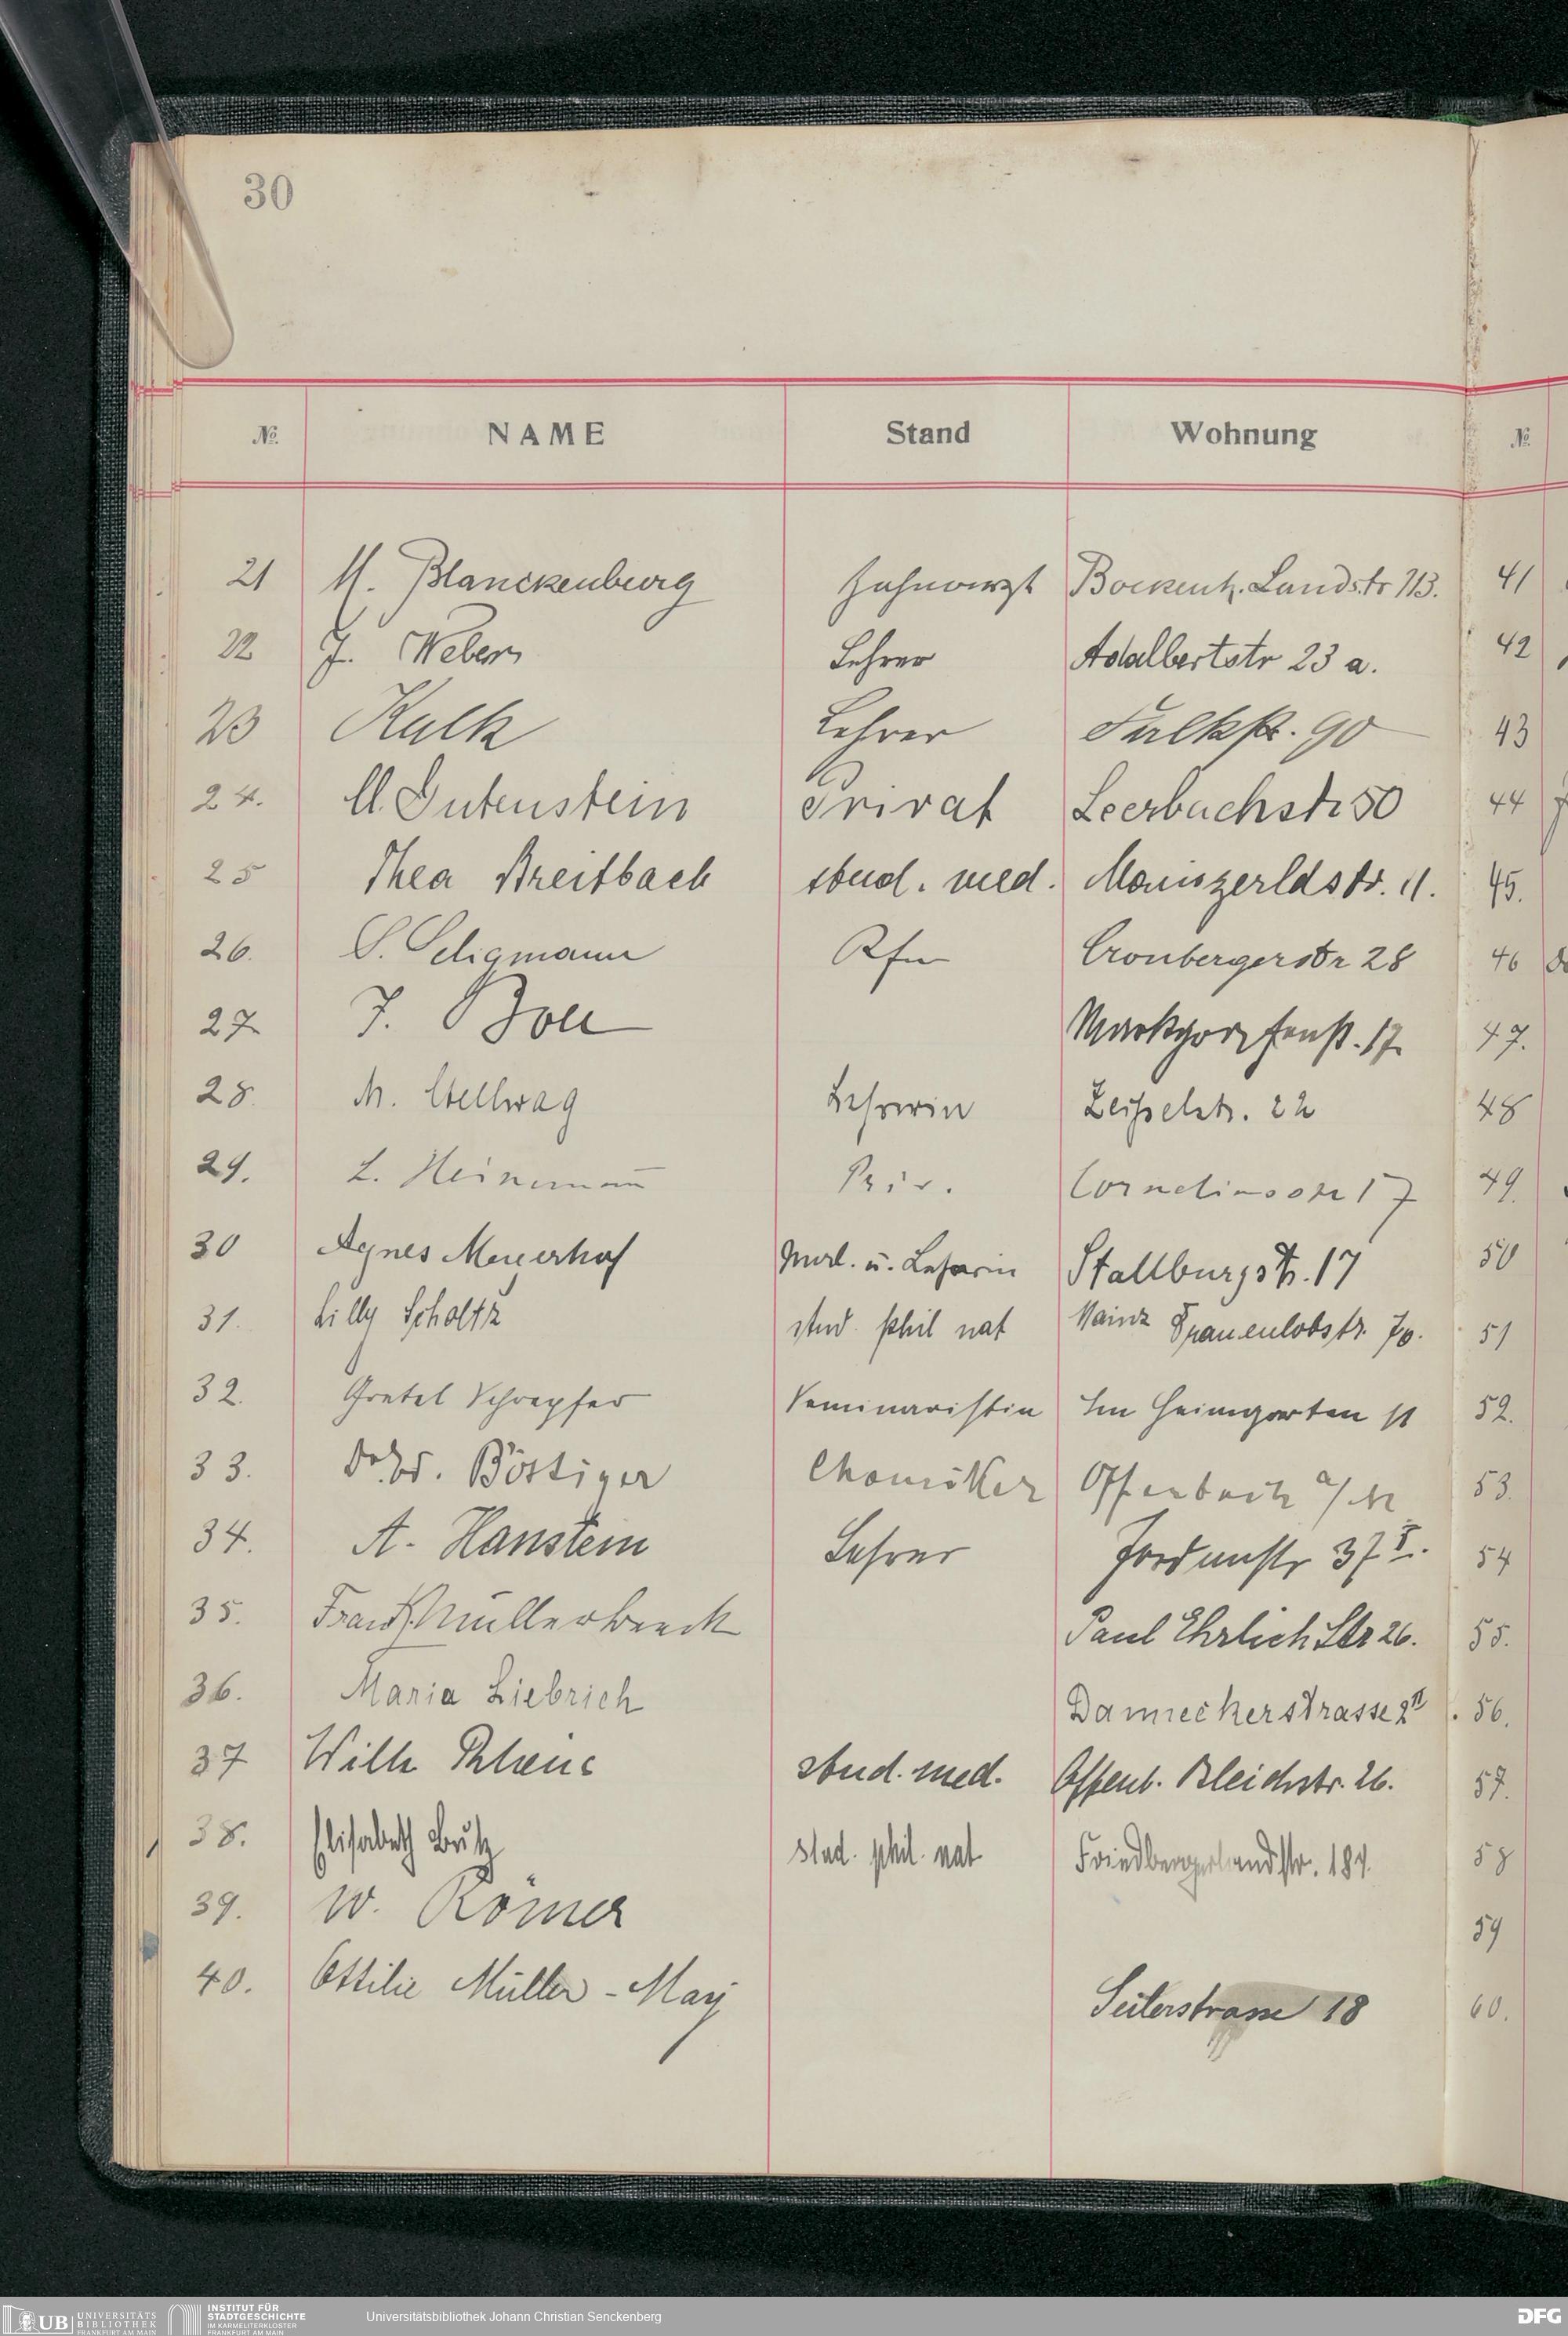 30
№ NAME Stand Wohnung №
21 M. Blanckenburg Zahnarzt Bockenh. Landstr 113. 41
22 J. Weber Lehrer Adalbertstr 23 a. 42
23 Kalk Lehrer Falkstr. 90 43
24. Gutenstein Privat Leerbachstr 50 44
25 Thea Breitbach stud. med. Mainzerldstr. 11. 45.
26. S. Seligmann Kfm Cronbergerstr 28 46
27 J. Boll Markgrafenstr. 17 47.
28. M. Stellwag Lehrerin Zeißelstr. 22 48
29. L. Heinemann Priv. Corneliusstr 17 49.
30 Agnes Meyerhof Mal. u. Lehrerin Stallburgstr. 17 50
31. Lilly Scholtz stud phil nat Mainz Frauenlobstr. 70. 51
32. Gretel Schrepfer Seminaristin Im Heimgarten 11 52.
33. Böttiger Chemiker Offenbach a/M 53.
34. A. Hanstein Lehrer Jordanstr 37 I. 54
35. Müllerbeeck Paul Ehrlich Str 26. 55.
36. Maria Liebrich Danneckerstrasse 2 II. 56.
37 Willi stud. med. Offenb. Bleichstr. 26. 57.
38. Elisabeth stud. phil. nat Friedbergerlandstr. 187. 58
39. W. Römer 59
40. Ottilie Müller-May Seilerstrasse 18 60.
UB UNIVERSITÄTS BIBLIOTHEK FRANKFURT AM MAIN
INSTITUT FÜR STADTGESCHICHTE IM KARMELITERKLOSTER FRANKFURT AM MAIN
Universitätsbibliothek Johann Christian Senckenberg
DFG